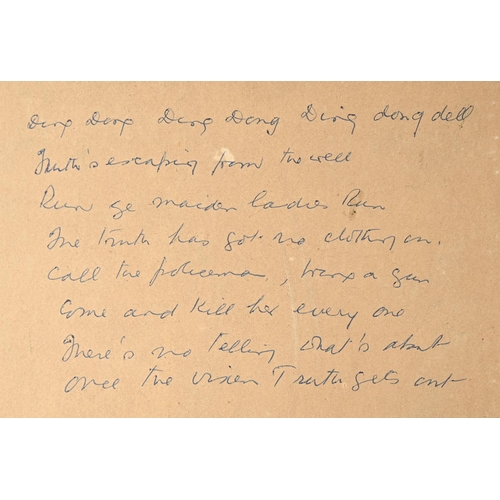 Ding Dong Ding Dong Ding dong dell
Truth's escaping from the well
Run ye maiden ladies Run
The truth has got no clothing on.
Call the policeman, bring a gun
Come and Kill her every one
There's no telling what's about
once the vixen Truth gets out